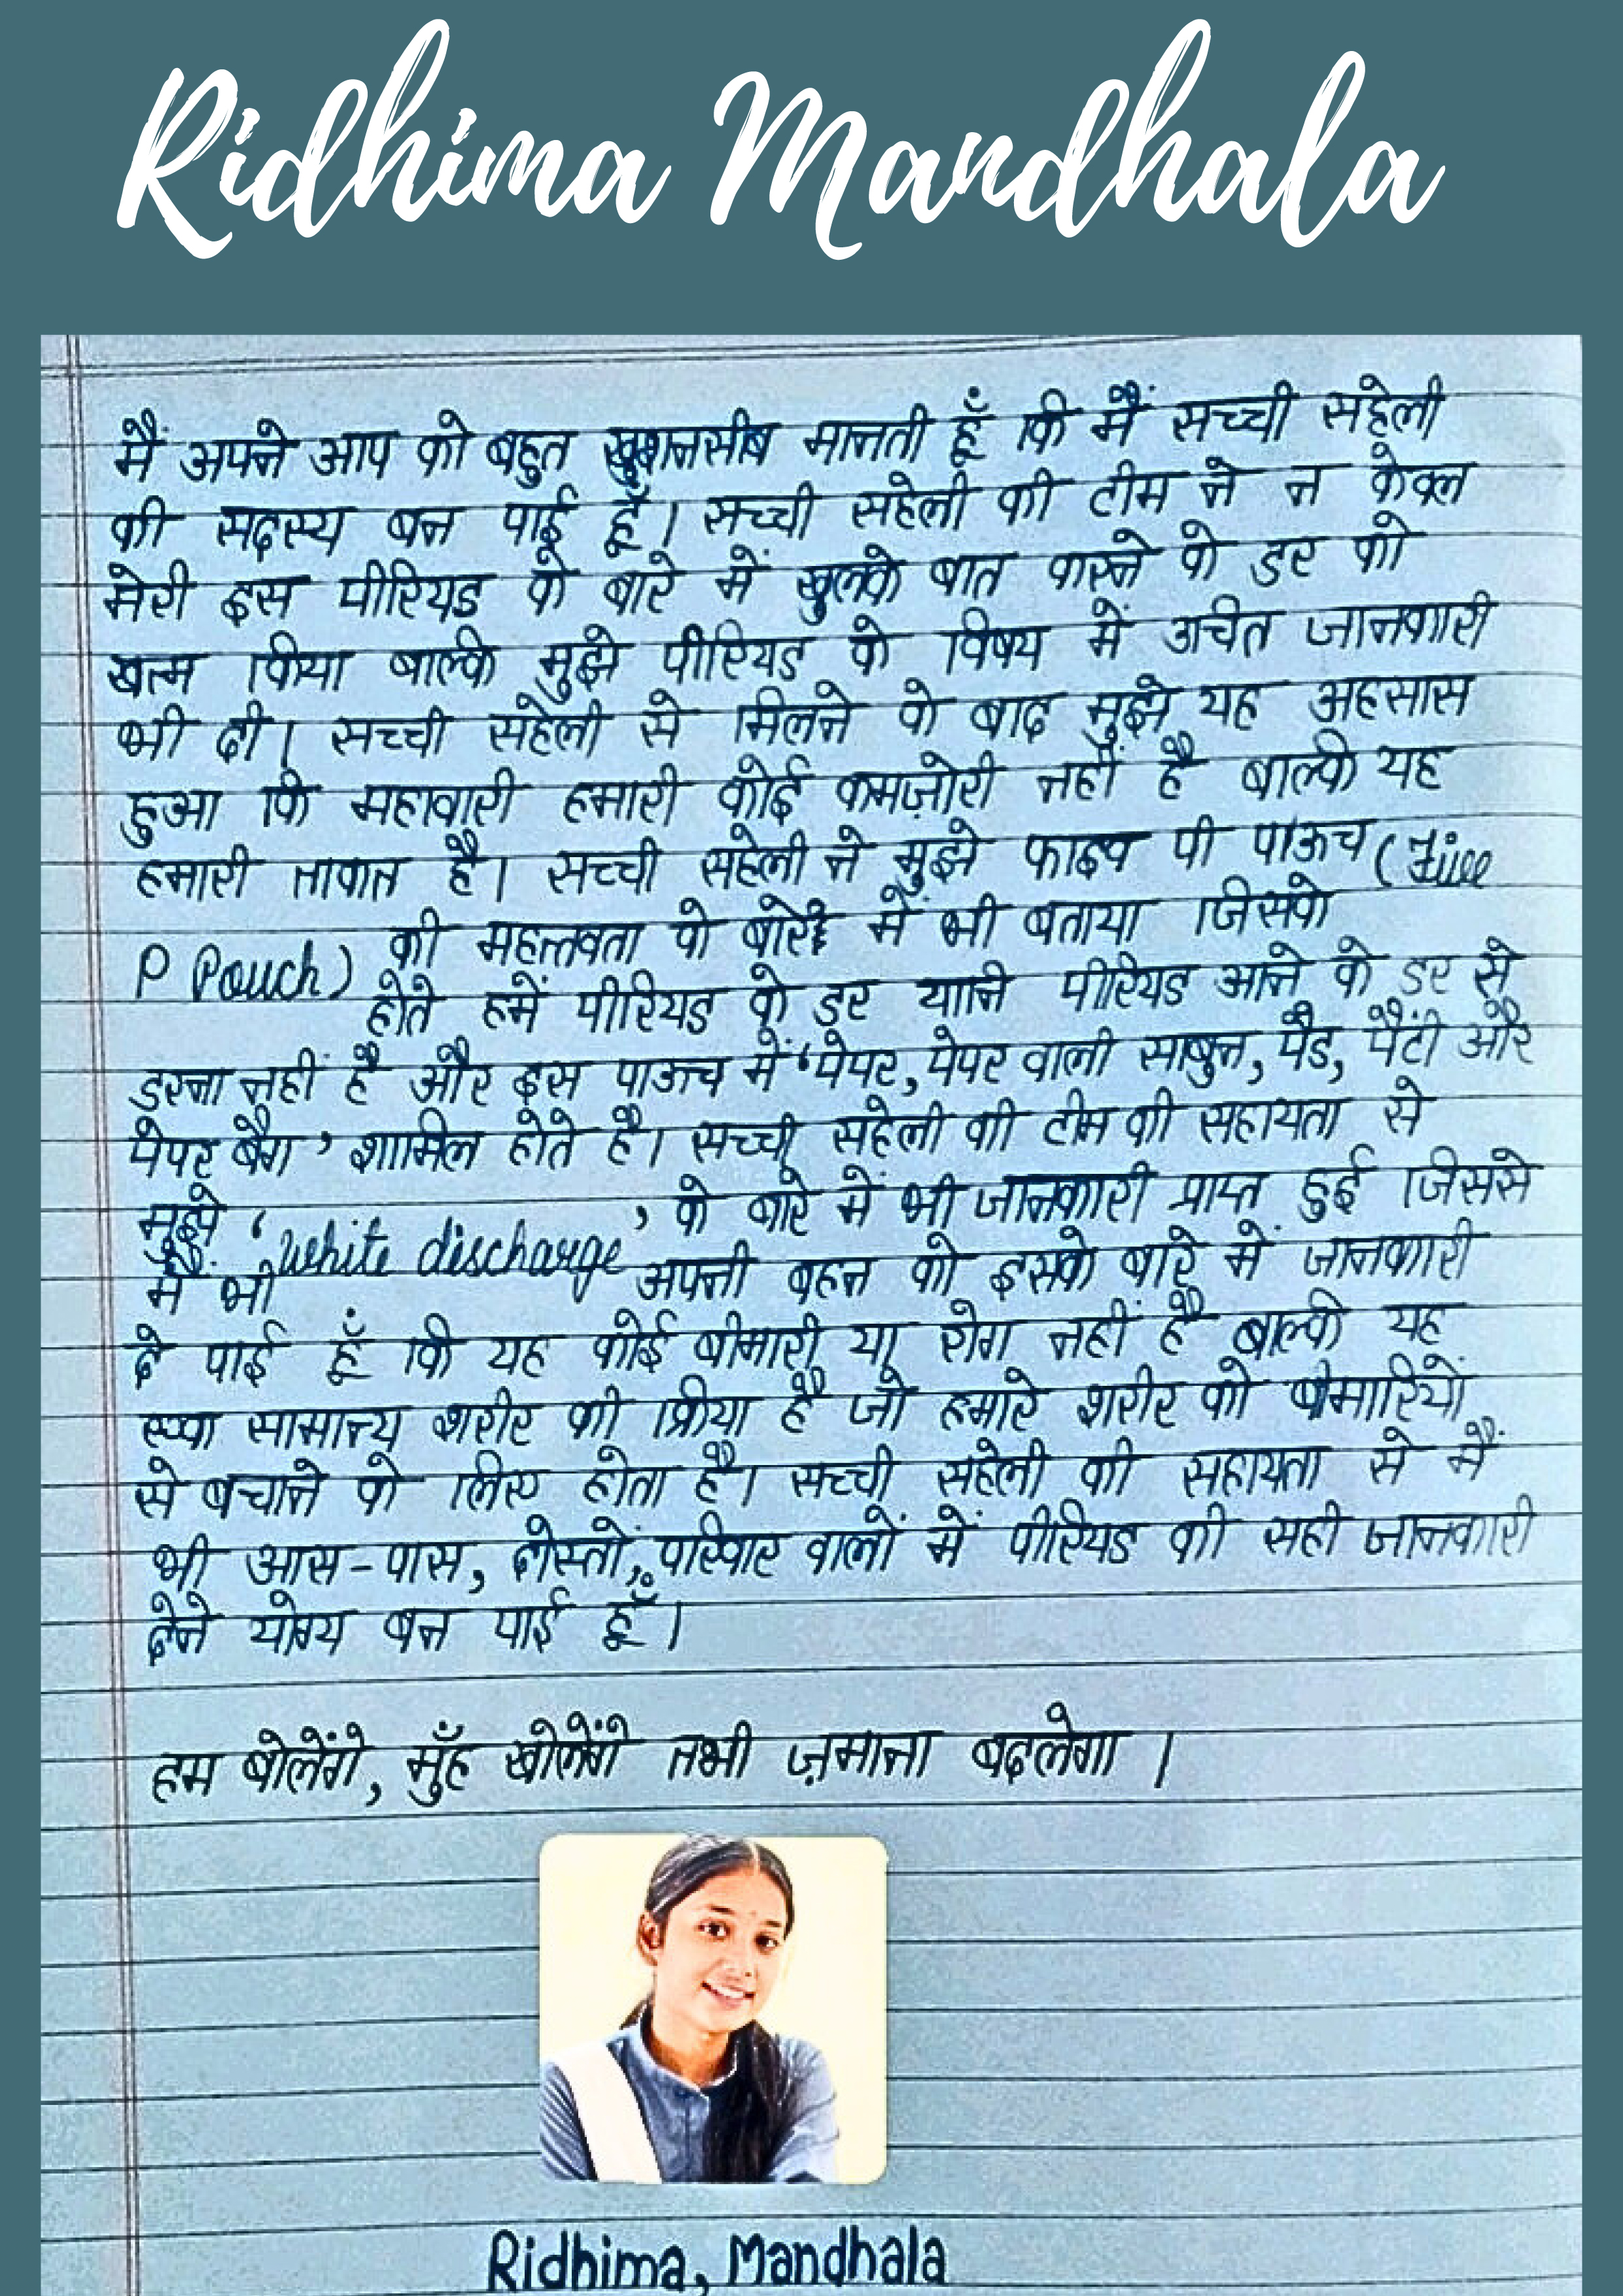 Ridhima Mandhala
मैं अपने आप को बहुत खुशनसीब मानती हूँ कि मैं सच्ची सहेली
की सदस्य बन पाई हूँ। सच्ची सहेली की टीम ने न केवल
मेरी इस पीरियड के बारे में खुलके बात करने के डर को
खत्म किया बाल्कि मुझे पीरियड के विषय में उचित जानकारी
भी दी। सच्ची सहेली से मिलने के बाद मुझे यह अहसास
हुआ कि महावारी हमारी कोई कमज़ोरी नहीं है बाल्कि यह
हमारी ताकत है। सच्ची सहेली ने मुझे फाइव पी पाऊच (Five
P Pouch) की महत्तवता के बारे में भी बताया जिसके
होते हमें पीरियड के डर यानि पीरियड आने के डर से
डरना नहीं है और इस पाऊच में 'पेपर, पेपर वाली साबुन, पैड, पैंटी और
पेपर बैग' शामिल होते है। सच्ची सहेली की टीम की सहायता से
मुझे 'white discharge' के बारे में भी जानकारी प्राप्त हुई जिससे
मैं भी अपनी बहन को इसके बारे में जानकारी
दे पाई हूँ कि यह कोई बीमारी या रोग नहीं है बाल्कि यह
एक सामान्य शरीर की क्रिया है जो हमारे शरीर को बीमारियों
से बचाने के लिए होता है। सच्ची सहेली की सहायता से मैं
भी आस-पास, दोस्तों, परिवार वालों में पीरियड की सही जानकारी
देने योग्य बन पाई हूँ।
हम बोलेंगे, मुँह खोलेंगे तभी ज़माना बदलेगा।
Ridhima, Mandhala